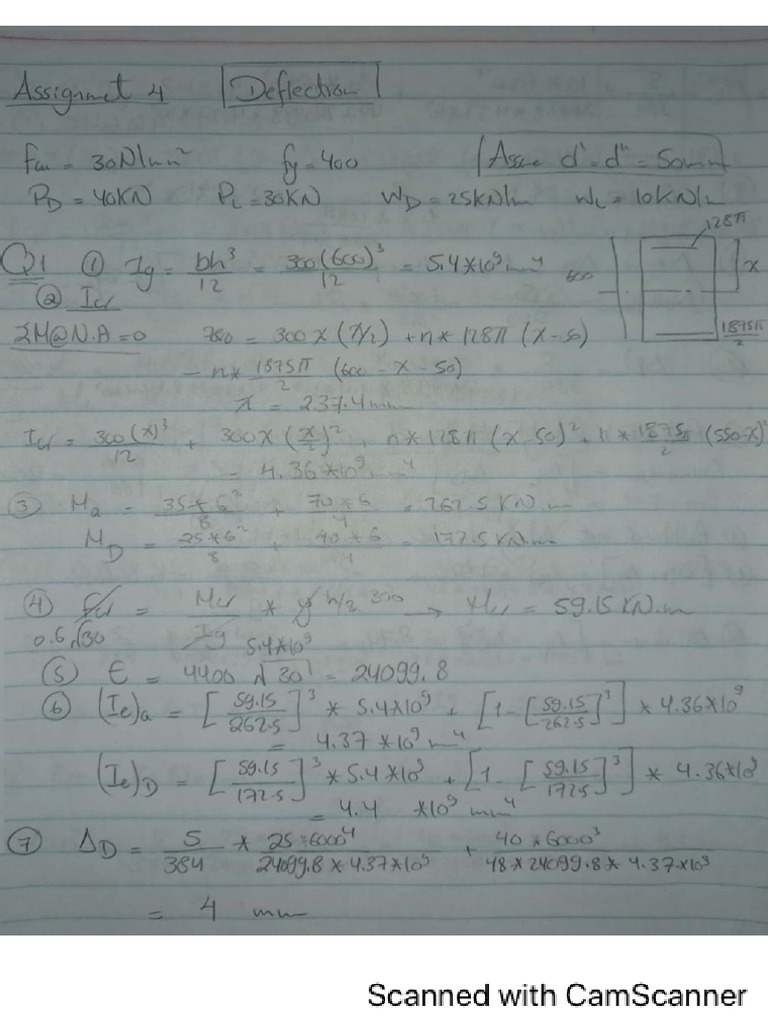 Assignmet 4 Deflection
Fcu = 30N/mm² fy = 400 Assume d' = d" = 50mm
PD = 40KN PL = 30KN WD = 25KN/m WL = 10KN/m
128π
Q1 ① Ig = bh³/12 = 300(600)³/12 = 5.4*10⁹mm⁴
600 x
② Icr
ΣM@N.A = 0 = 300 x (x/2) + n * 128π (x-50)
1875π/2
- n * 1875π/2 (600 - x - 50)
x = 237.4mm
Icr = 300(x)³/12 + 300x (x/2)² + n*128π (x-50)² + n * 1875π/2 (550-x)²
= 4.36*10⁹ mm⁴
③ Ma = 35*6²/8 + 70*6/4 = 262.5 KN.m
MD = 25*6²/8 + 40*6/4 = 172.5 KN.m
④ fcr = Mcr/Ig * y h/2 300 → Mcr = 59.15 KN.m
0.6√30 5.4*10⁹
⑤ E = 4400 √30 = 24099.8
⑥ (Ie)a = [59.15/262.5]³ * 5.4*10⁹ + [1-[59.15/262.5]³] * 4.36*10⁹
= 4.37 *10⁹ mm⁴
(Ie)D = [59.15/172.5]³ * 5.4*10⁹ + [1 - [59.15/172.5]³] * 4.36*10⁹
= 4.4 *10⁹ mm⁴
⑦ ΔD = 5/384 * 25*6000⁴/24099.8*4.37*10⁹ + 40*6000³/48*24099.8*4.37*10³
= 4 mm
Scanned with CamScanner